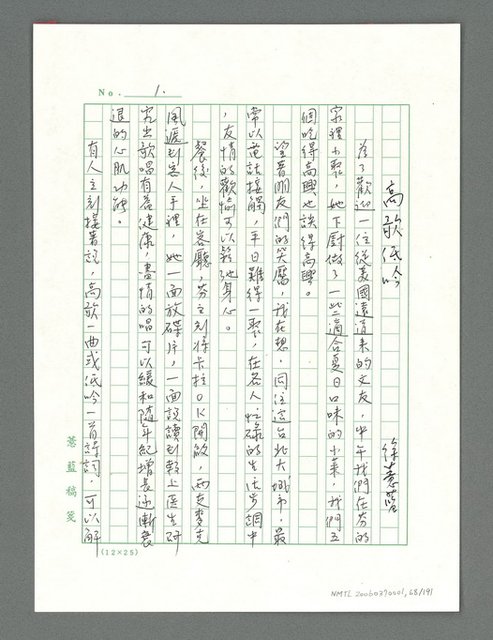 No. 1.
高歌低吟
徐薏藍
為了歡迎一位從美國遠道來的文友,中午我們在芬的
家裡小聚,她下廚做了一些適合夏日口味的小菜,我們五
個吃得高興也談得高興。
望着朋友們的笑靨,我在想,同住這台北大城市,最
常以電話接觸,平日難得一聚,在各人忙碌的生活步調中
,友情的歡愉可以鬆弛身心。
餐後,坐在客廳,芬立刻將卡拉OK開啟,兩支麥克
風遞到客人手裡,她一面放碟片,一面說讀到報上醫生研
究出歌唱有益健康,盡情的唱可以緩和隨年紀增長逐漸衰
退的心肌功能。
有人立刻接著說,高歌一曲或低吟一首詩詞,可以解
薏藍稿箋
(12×25)
NMTL20060370001,68/191